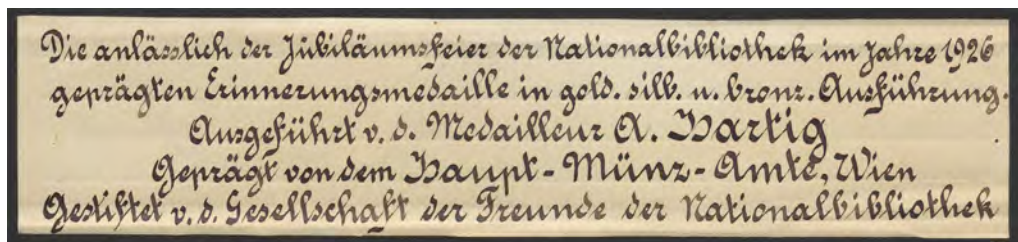 Die anlässlich der Jubiläumsfeier der Nationalbibliothek im Jahre 1926
geprägten Erinnerungsmedaille in gold. silb. u. bronz. Ausführung.
Ausgeführt v. d. Medailleur A. Hartig
Geprägt von dem Haupt-Münz-Amte, Wien
Gestiftet v. d. Gesellschaft der Freunde der Nationalbibliothek